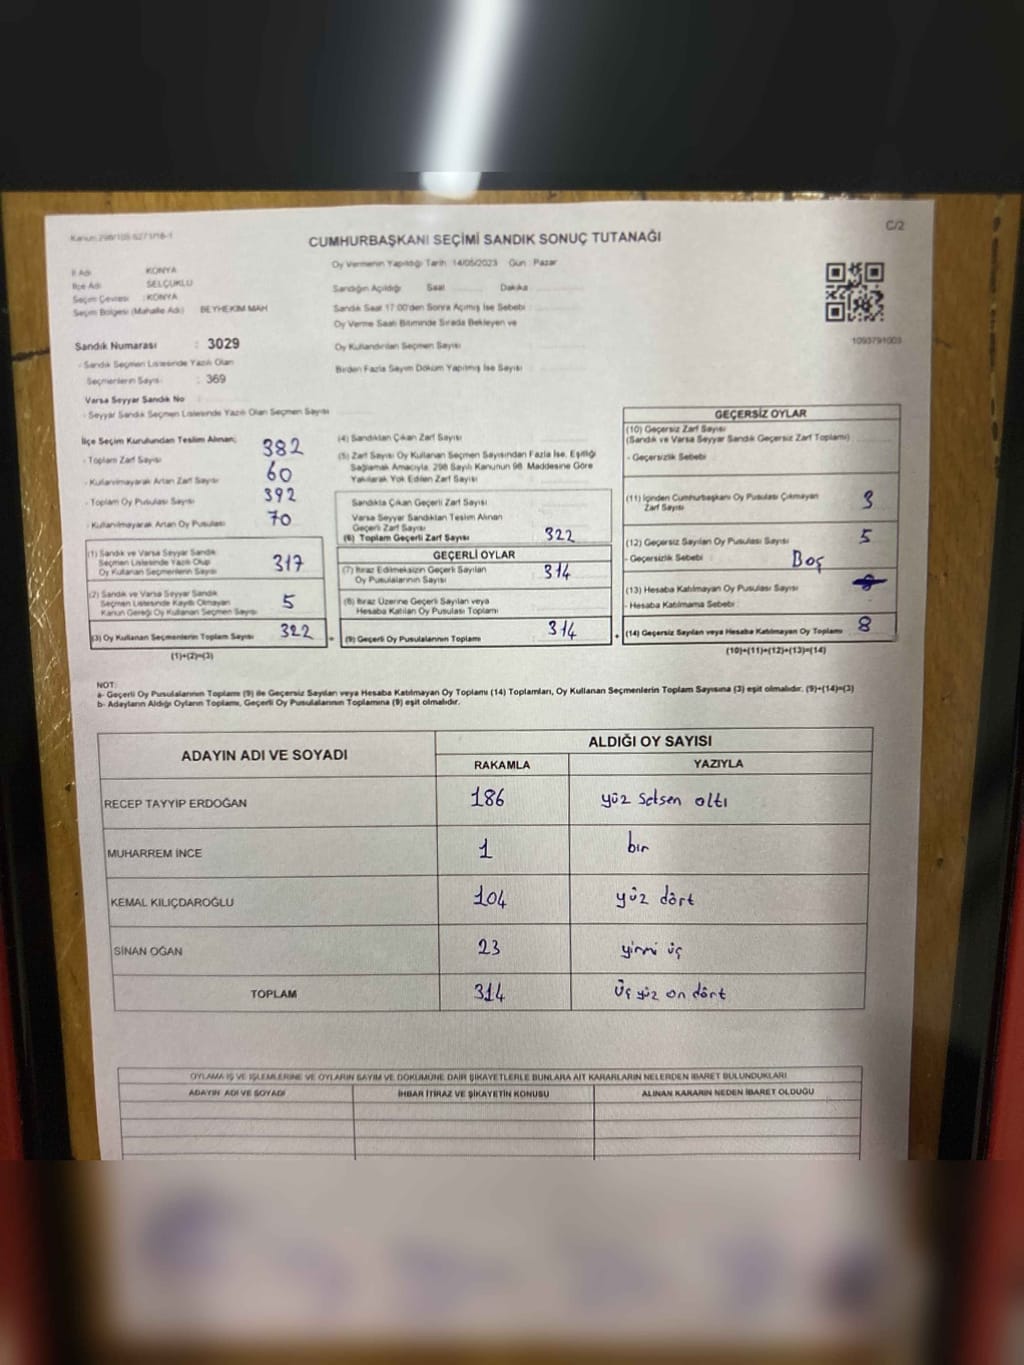 Kanun:298/105-6271/16-1
C/2
CUMHURBAŞKANI SEÇİMİ SANDIK SONUÇ TUTANAĞI
İl Adı : KONYA
İlçe Adı : SELÇUKLU
Seçim Çevresi : KONYA
Seçim Bölgesi (Mahalle Adı) : BEYHEKİM MAH
Sandık Numarası : 3029
- Sandık Seçmen Listesinde Yazılı Olan
Seçmenlerin Sayısı : 369
Varsa Seyyar Sandık No
- Seyyar Sandık Seçmen Listesinde Yazılı Olan Seçmen Sayısı
Oy Vermenin Yapıldığı Tarih: 14/05/2023 Gün : Pazar
Sandığın Açıldığı Saat Dakika
Sandık Saat 17:00'den Sonra Açılmış İse Sebebi
Oy Verme Saati Bitiminde Sırada Bekleyen ve
Oy Kullandırılan Seçmen Sayısı
Birden Fazla Sayım Döküm Yapılmış İse Sayısı
1093791003
İlçe Seçim Kurulundan Teslim Alınan;
- Toplam Zarf Sayısı 382
- Kullanılmayarak Artan Zarf Sayısı 60
- Toplam Oy Pusulası Sayısı 392
- Kullanılmayarak Artan Oy Pusulası 70
(1) Sandık ve Varsa Seyyar Sandık
Seçmen Listesinde Yazılı Olup
Oy Kullanan Seçmenlerin Sayısı 317
(2) Sandık ve Varsa Seyyar Sandık
Seçmen Listesinde Kayıtlı Olmayan
Kanun Gereği Oy Kullanan Seçmen Sayısı 5
(3) Oy Kullanan Seçmenlerin Toplam Sayısı 322
(1)+(2)=(3)
(4) Sandıktan Çıkan Zarf Sayısı
(5) Zarf Sayısı Oy Kullanan Seçmen Sayısından Fazla İse, Eşitliği
Sağlamak Amacıyla, 298 Sayılı Kanunun 98. Maddesine Göre
Yakılarak Yok Edilen Zarf Sayısı
Sandıkta Çıkan Geçerli Zarf Sayısı
Varsa Seyyar Sandıktan Teslim Alınan
Geçerli Zarf Sayısı
(6) Toplam Geçerli Zarf Sayısı 322
GEÇERLİ OYLAR
(7) İtiraz Edilmeksizin Geçerli Sayılan
Oy Pusulalarının Sayısı 314
(8) İtiraz Üzerine Geçerli Sayılan veya
Hesaba Katılan Oy Pusulası Toplamı
(9) Geçerli Oy Pusulalarının Toplamı 314
GEÇERSİZ OYLAR
(10) Geçersiz Zarf Sayısı
(Sandık ve Varsa Seyyar Sandık Geçersiz Zarf Toplamı)
- Geçersizlik Sebebi
(11) İçinden Cumhurbaşkanı Oy Pusulası Çıkmayan
Zarf Sayısı 3
(12) Geçersiz Sayılan Oy Pusulası Sayısı 5
- Geçersizlik Sebebi Boş
(13) Hesaba Katılmayan Oy Pusulası Sayısı
- Hesaba Katılmama Sebebi
(14) Geçersiz Sayılan veya Hesaba Katılmayan Oy Toplamı 8
(10)+(11)+(12)+(13)=(14)
NOT:
a- Geçerli Oy Pusulalarının Toplamı (9) ile Geçersiz Sayılan veya Hesaba Katılmayan Oy Toplamı (14) Toplamları, Oy Kullanan Seçmenlerin Toplam Sayısına (3) eşit olmalıdır. (9)+(14)=(3)
b- Adayların Aldığı Oyların Toplamı, Geçerli Oy Pusulalarının Toplamına (9) eşit olmalıdır.
ADAYIN ADI VE SOYADI
ALDIĞI OY SAYISI
RAKAMLA YAZIYLA
RECEP TAYYİP ERDOĞAN 186 yüz seksen altı
MUHARREM İNCE 1 bir
KEMAL KILIÇDAROĞLU 104 yüz dört
SİNAN OĞAN 23 yirmi üç
TOPLAM 314 üç yüz on dört
OYLAMA İŞ VE İŞLEMLERİNE VE OYLARIN SAYIM VE DÖKÜMÜNE DAİR ŞİKAYETLERLE BUNLARA AİT KARARLARIN NELERDEN İBARET BULUNDUKLARI
ADAYIN ADI VE SOYADI İHBAR İTİRAZ VE ŞİKAYETİN KONUSU ALINAN KARARIN NEDEN İBARET OLDUĞU